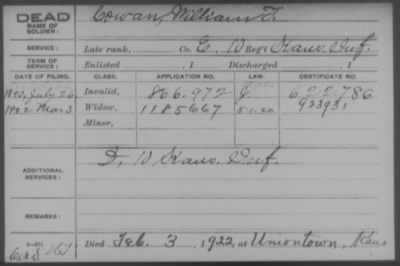 DEAD Cowan, William F.
NAME OF SOLDIER:
SERVICE: Late rank, Co. E, 10 Reg't Kans. Inf.
TERM OF SERVICE: Enlisted , 1 Discharged , 1
DATE OF FILING. CLASS. APPLICATION NO. LAW. CERTIFICATE NO.
1890, July 26 Invalid, 806.972 J. 622.786
1922 Mar 3 Widow, 1185667 5-1-20 923931
Minor,
ADDITIONAL SERVICES: 10 Kans. Inf.
REMARKS:
Died Feb. 3, 1922, at Uniontown, Kans